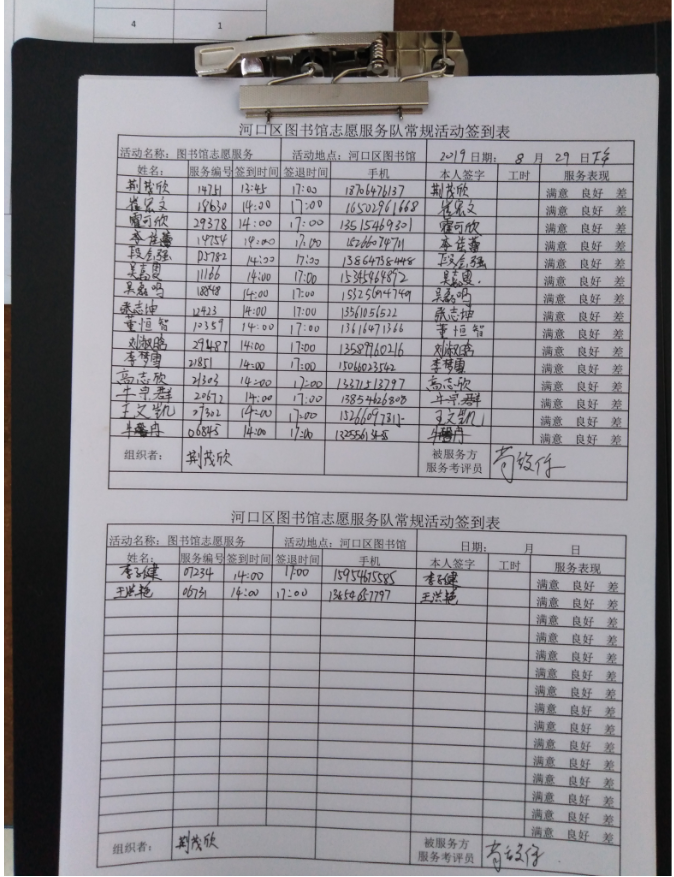 4 1
河口区图书馆志愿服务队常规活动签到表
活动名称：图书馆志愿服务 活动地点：河口区图书馆 2019 日期： 8 月 29 日 下午
姓名： 服务编号 签到时间 签退时间 手机 本人签字 工时 服务表现
荆茂欣 14751 13:45 17:00 18706476137 荆茂欣 满意 良好 差
崔宏文 18630 14:00 17:00 16502961668 崔宏文 满意 良好 差
霍可欣 29378 14:00 17:00 13515469301 霍可欣 满意 良好 差
14754 14:00 17:00 15266074711 满意 良好 差
段会强 05782 14:00 17:00 13864738448 段会强 满意 良好 差
11166 14:00 17:00 15345464892 满意 良好 差
18848 14:00 17:00 满意 良好 差
张志坤 12423 14:00 17:00 张志坤 满意 良好 差
董恒智 10359 14:00 17:00 13616471366 董恒智 满意 良好 差
刘淑鹏 29487 14:00 17:00 13589960216 刘淑鹏 满意 良好 差
李梦雪 21851 14:00 17:00 15066023542 李梦雪 满意 良好 差
高志欣 21303 14:00 17:00 13371513797 高志欣 满意 良好 差
牛宗群 20672 14:00 17:00 13854626808 牛宗群 满意 良好 差
王文凯 07302 14:00 17:00 王文凯 满意 良好 差
06845 14:00 17:00 满意 良好 差
组织者： 荆茂欣 被服务方
服务考评员
河口区图书馆志愿服务队常规活动签到表
活动名称：图书馆志愿服务 活动地点：河口区图书馆 日期： 月 日
姓名： 服务编号 签到时间 签退时间 手机 本人签字 工时 服务表现
李子健 07234 14:00 17:00 15954675585 李子健 满意 良好 差
王洪艳 06731 14:00 17:00 王洪艳 满意 良好 差
满意 良好 差
满意 良好 差
满意 良好 差
满意 良好 差
满意 良好 差
满意 良好 差
满意 良好 差
满意 良好 差
满意 良好 差
满意 良好 差
满意 良好 差
满意 良好 差
满意 良好 差
组织者： 荆茂欣 被服务方
服务考评员